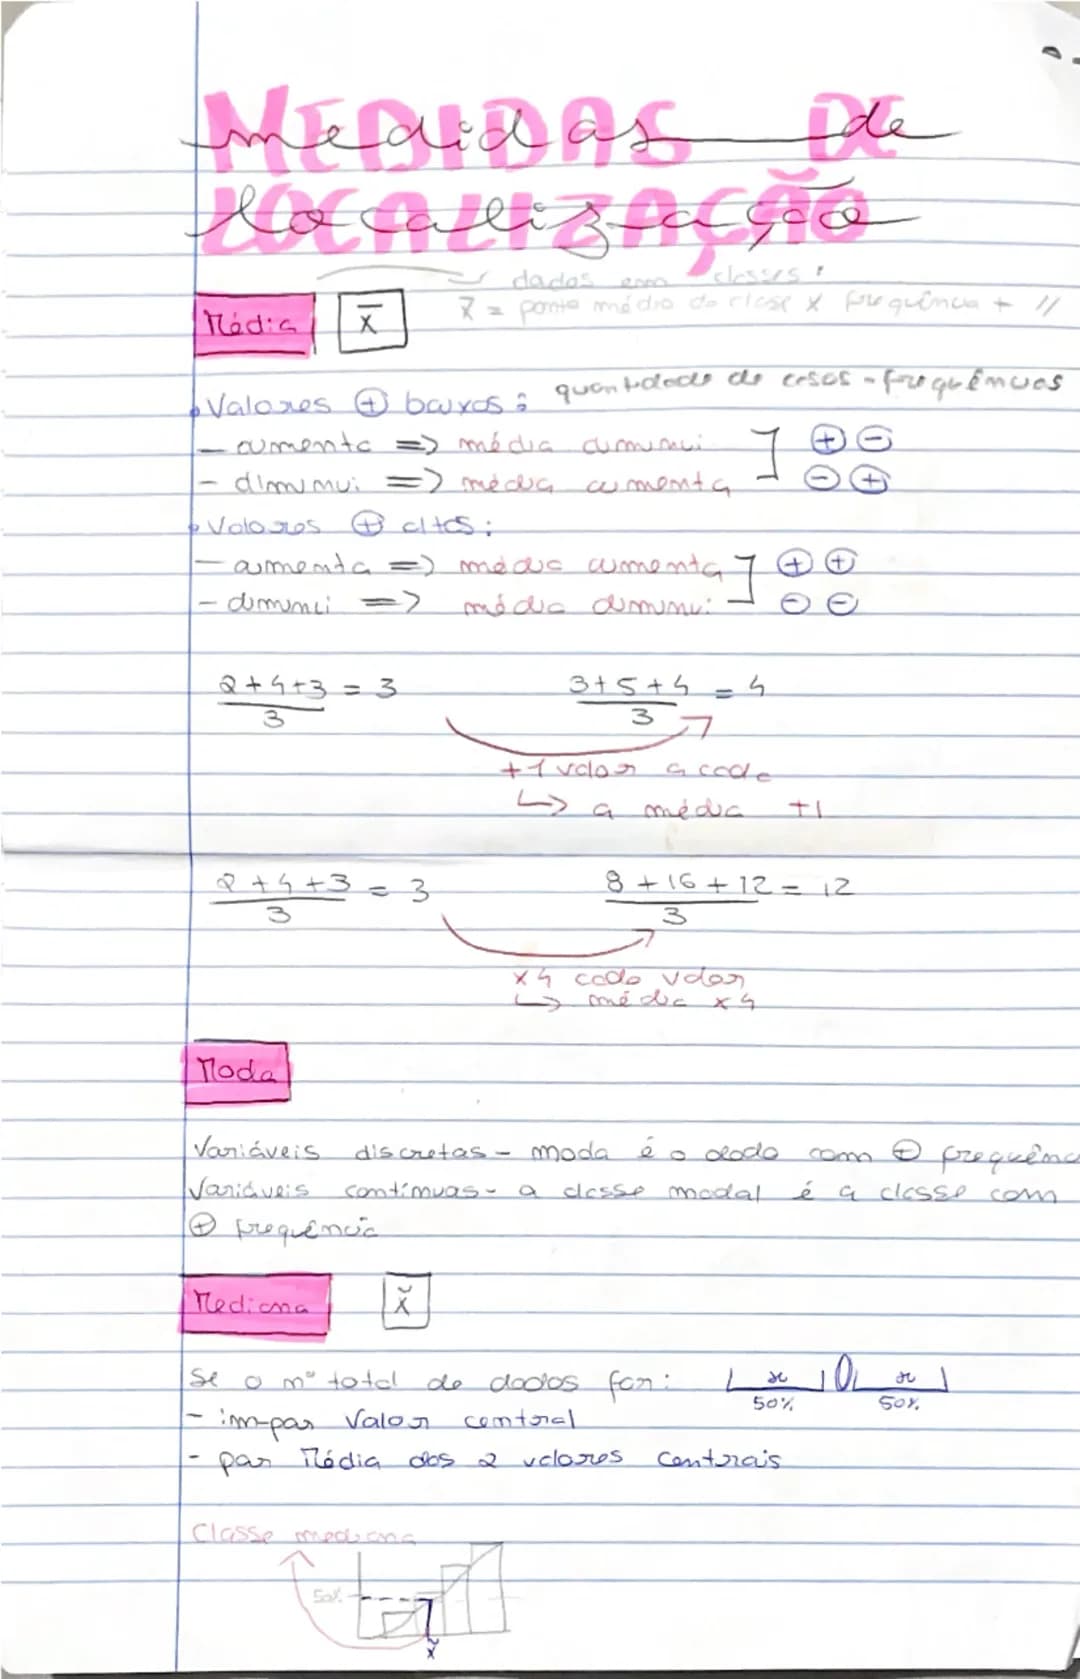 MEDIDAS DE
medidas de
LOCALIZAÇÃO
localização
dados em classes:
x̄ = ponto médio da classe x frequência + //
Média x̄
quantidade de casos - frequências
Valores ⊕ baixos:
- aumenta => média diminui ⊕ ⊖
- diminui => média aumenta ⊖ ⊕
Valores ⊕ altos:
- aumenta => média aumenta ⊕ ⊕
- diminui => média diminui ⊖ ⊖
2+4+3 = 3 3+5+4 = 4
3 3
+1 valor a cada
↳ a média +1
2+4+3 = 3 8+16+12 = 12
3 3
x4 cada valor
↳ média x4
Moda
Variáveis discretas - moda é o dado com ⊕ frequênc
Variáveis contínuas - a classe modal é a classe com
⊕ frequência
Mediana x̃
Se o nº total de dados for: x x
50% 50%
- ímpar Valor central
- par Média dos 2 valores centrais
Classe mediana
50%
x̃